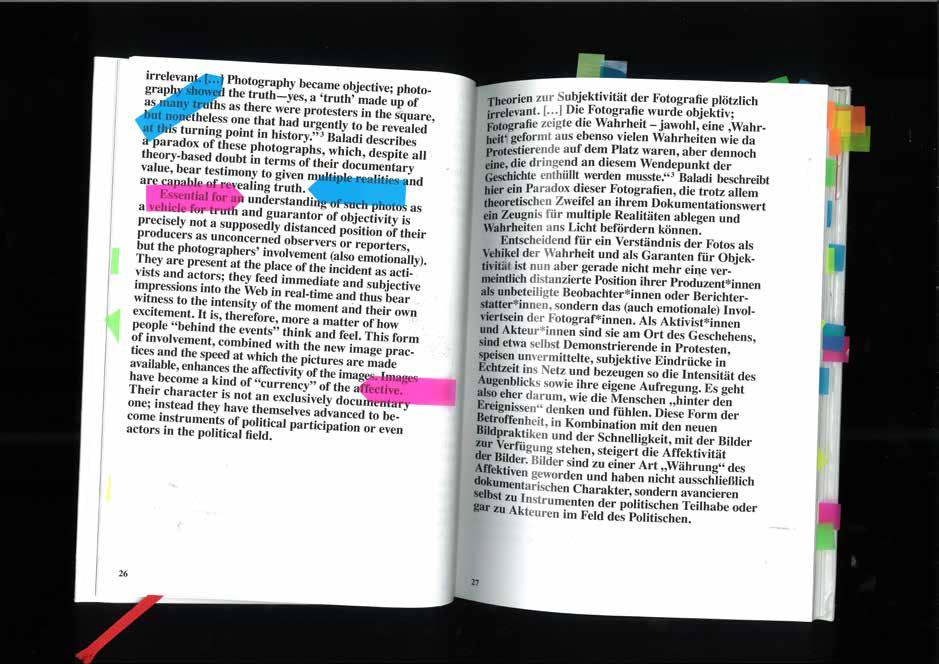 irrelevant. […] Photography became objective; photo-
graphy showed the truth—yes, a ‘truth’ made up of
as many truths as there were protesters in the square,
but nonetheless one that had urgently to be revealed
at this turning point in history.”³ Baladi describes
a paradox of these photographs, which, despite all
theory-based doubt in terms of their documentary
value, bear testimony to given multiple realities and
are capable of revealing truth.
Essential for an understanding of such photos as
a vehicle for truth and guarantor of objectivity is
precisely not a supposedly distanced position of their
producers as unconcerned observers or reporters,
but the photographers’ involvement (also emotionally).
They are present at the place of the incident as acti-
vists and actors; they feed immediate and subjective
impressions into the Web in real-time and thus bear
witness to the intensity of the moment and their own
excitement. It is, therefore, more a matter of how
people “behind the events” think and feel. This form
of involvement, combined with the new image prac-
tices and the speed at which the pictures are made
available, enhances the affectivity of the images. Images
have become a kind of “currency” of the affective.
Their character is not an exclusively documentary
one; instead they have themselves advanced to be-
come instruments of political participation or even
actors in the political field.
26
Theorien zur Subjektivität der Fotografie plötzlich
irrelevant. […] Die Fotografie wurde objektiv;
Fotografie zeigte die Wahrheit – jawohl, eine ‚Wahr-
heit‘ geformt aus ebenso vielen Wahrheiten wie da
Protestierende auf dem Platz waren, aber dennoch
eine, die dringend an diesem Wendepunkt der
Geschichte enthüllt werden musste.“³ Baladi beschreibt
hier ein Paradox dieser Fotografien, die trotz allem
theoretischen Zweifel an ihrem Dokumentationswert
ein Zeugnis für multiple Realitäten ablegen und
Wahrheiten ans Licht befördern können.
Entscheidend für ein Verständnis der Fotos als
Vehikel der Wahrheit und als Garanten für Objek-
tivität ist nun aber gerade nicht mehr eine ver-
meintlich distanzierte Position ihrer Produzent*innen
als unbeteiligte Beobachter*innen oder Berichter-
statter*innen, sondern das (auch emotionale) Invol-
viertsein der Fotograf*innen. Als Aktivist*innen
und Akteur*innen sind sie am Ort des Geschehens,
sind etwa selbst Demonstrierende in Protesten,
speisen unvermittelte, subjektive Eindrücke in
Echtzeit ins Netz und bezeugen so die Intensität des
Augenblicks sowie ihre eigene Aufregung. Es geht
also eher darum, wie die Menschen „hinter den
Ereignissen“ denken und fühlen. Diese Form der
Betroffenheit, in Kombination mit den neuen
Bildpraktiken und der Schnelligkeit, mit der Bilder
zur Verfügung stehen, steigert die Affektivität
der Bilder. Bilder sind zu einer Art „Währung“ des
Affektiven geworden und haben nicht ausschließlich
dokumentarischen Charakter, sondern avancieren
selbst zu Instrumenten der politischen Teilhabe oder
gar zu Akteuren im Feld des Politischen.
27